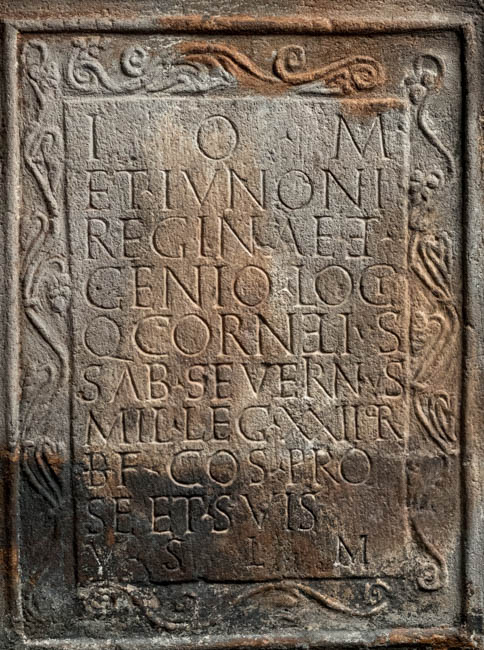 I O M
ET·IVNONI
REGINAE ET·
GENIO·LOCI
Q CORNELI·S
SAB·SEVERN·VS
MIL·LEG·XXII·PR
BF·COS·PRO
SE ET·SVIS
V S L M